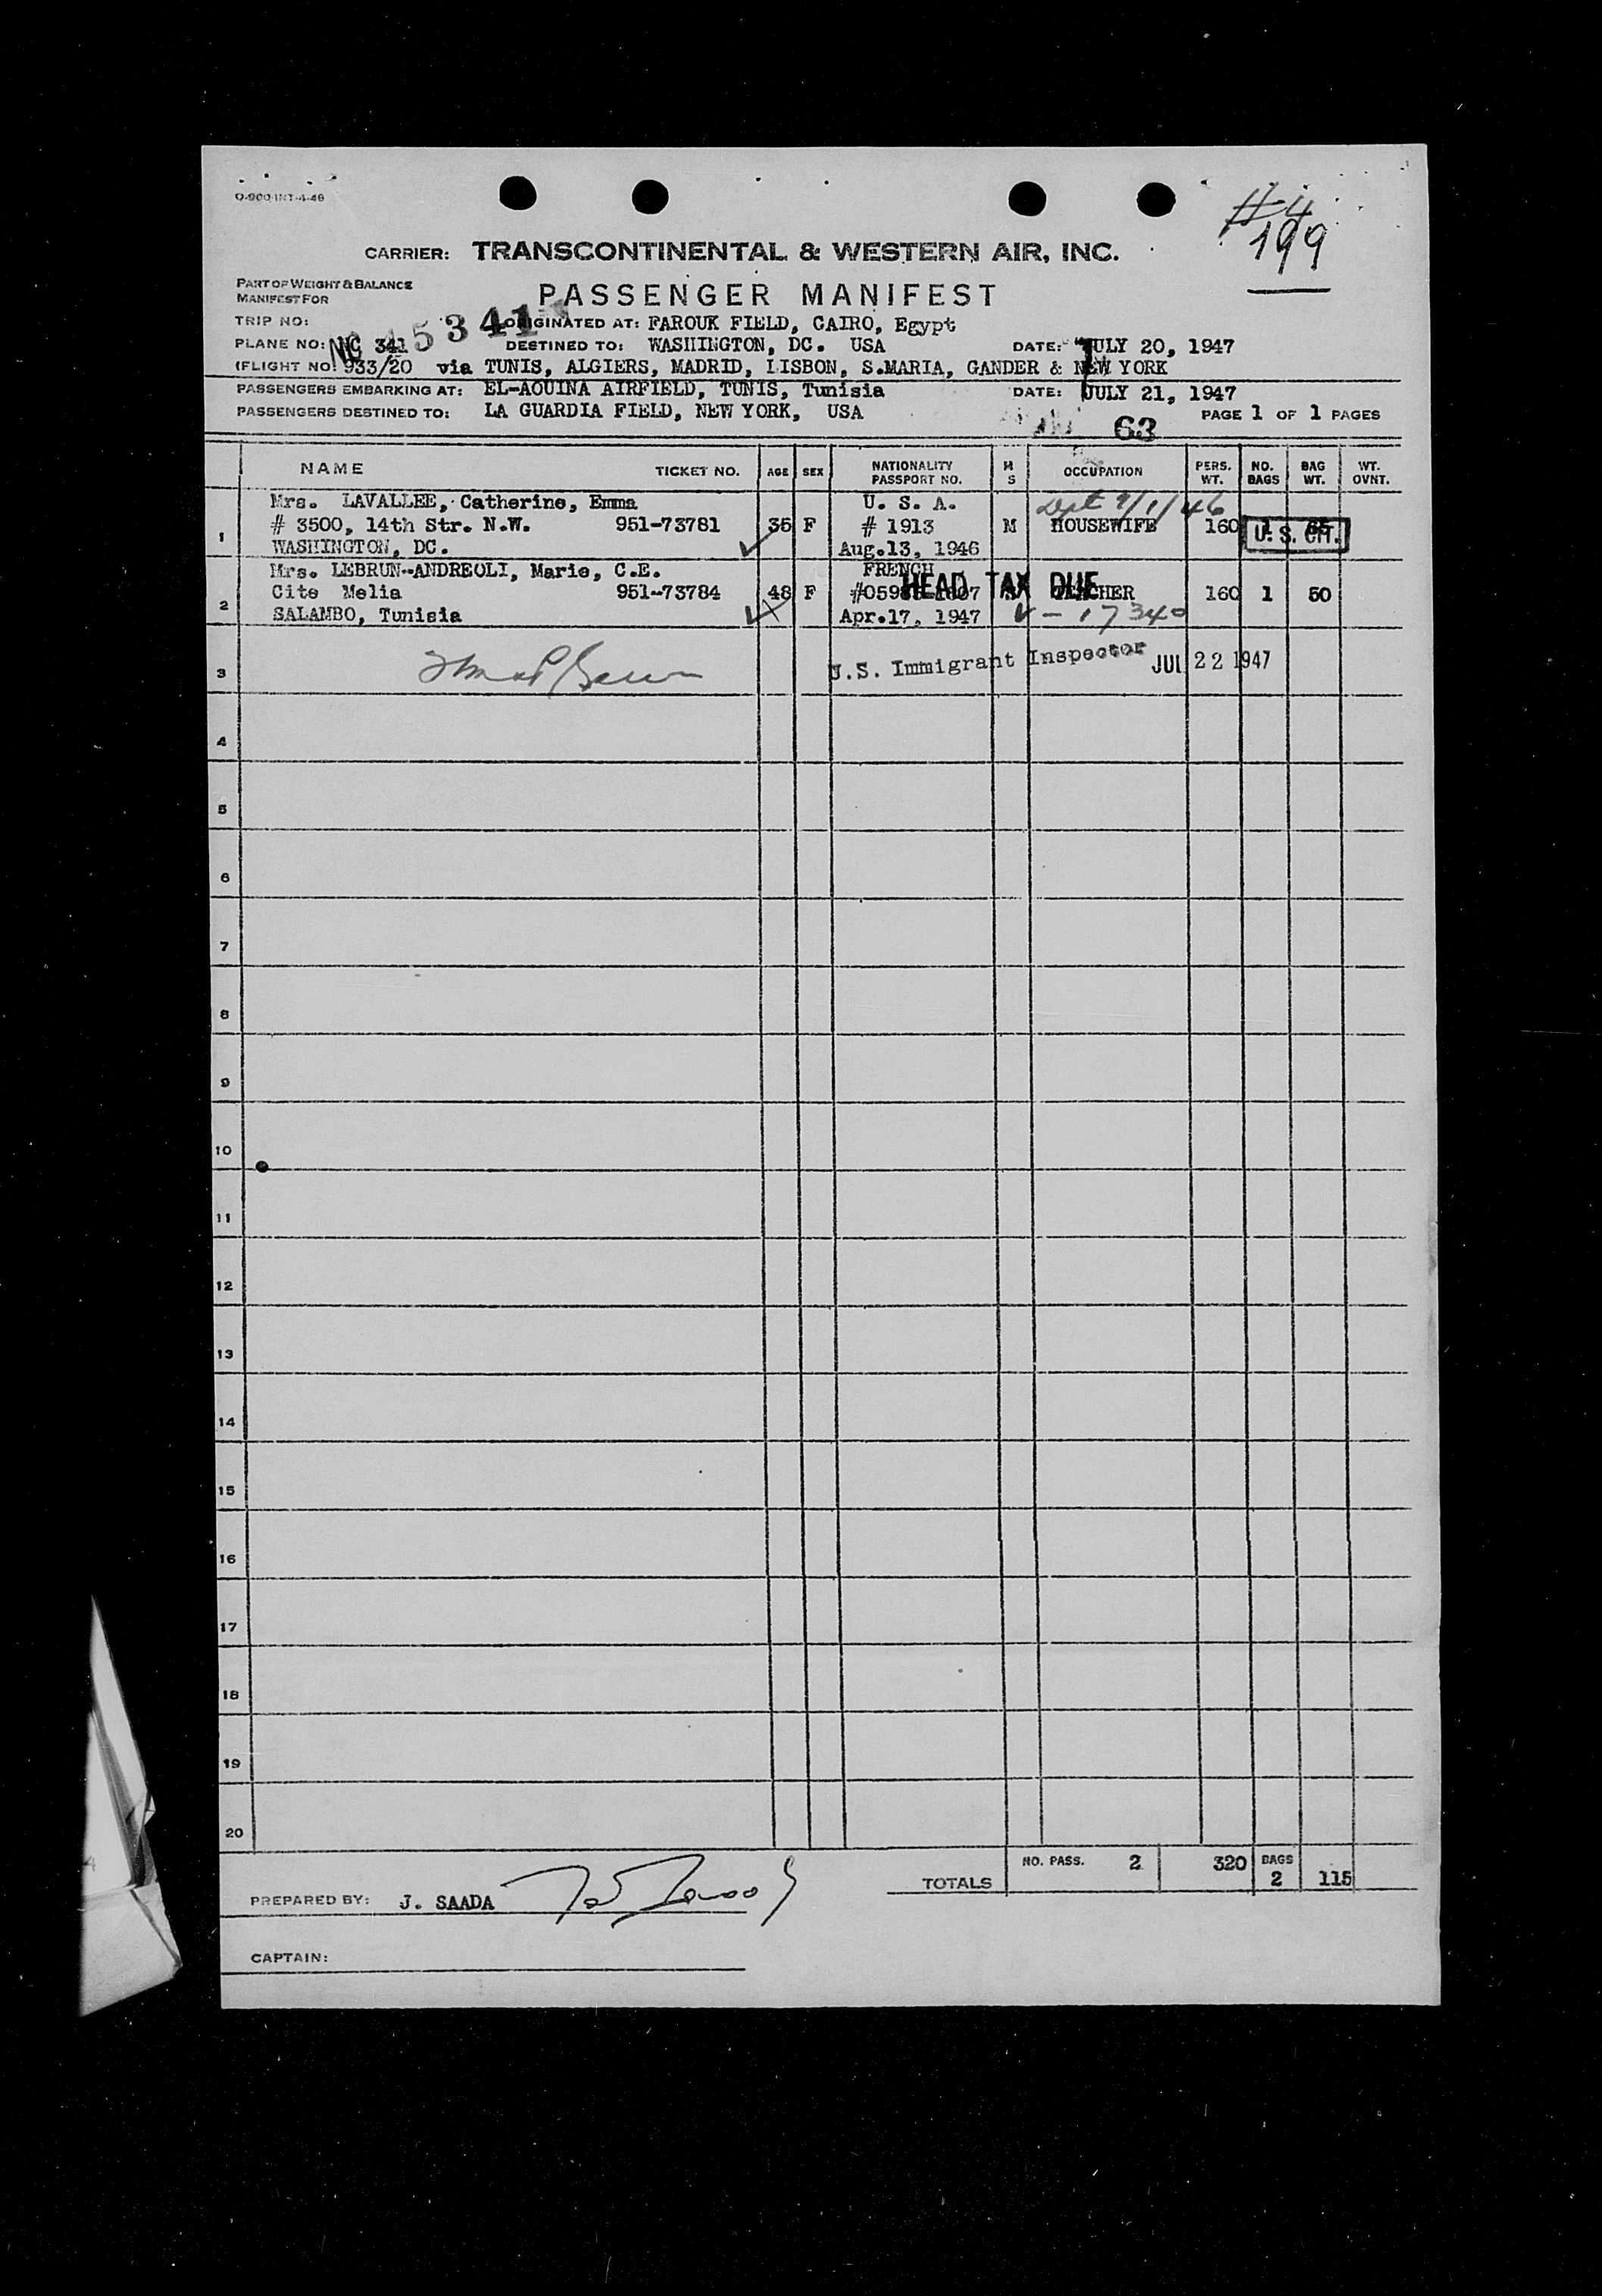 O-900 INT-4-46
#4
199
CARRIER: TRANSCONTINENTAL & WESTERN AIR, INC.
PART OF WEIGHT & BALANCE
MANIFEST FOR
PASSENGER MANIFEST
TRIP NO: ORIGINATED AT: FAROUK FIELD, CAIRO, Egypt
PLANE NO: NC 341 NC 45341 DESTINED TO: WASHINGTON, DC. USA DATE: JULY 20, 1947
(FLIGHT NO: 933/20 via TUNIS, ALGIERS, MADRID, LISBON, S.MARIA, GANDER & NEW YORK
PASSENGERS EMBARKING AT: EL-AOUINA AIRFIELD, TUNIS, Tunisia DATE: JULY 21, 1947
PASSENGERS DESTINED TO: LA GUARDIA FIELD, NEW YORK, USA PAGE 1 OF 1 PAGES
63
NAME TICKET NO. AGE SEX NATIONALITY PASSPORT NO. M S OCCUPATION PERS. WT. NO. BAGS BAG WT. WT. OVNT.
Mrs. LAVALLEE, Catherine, Emma U. S. A. Dept 9/1/46
1 # 3500, 14th Str. N.W. 951-73781 35 F # 1913 M HOUSEWIFE 160 1 65 U. S. CIT.
WASHINGTON, DC. Aug.13, 1946
Mrs. LEBRUN-ANDREOLI, Marie, C.E. FRENCH
HEAD TAX DUE
2 Cite Melia 951-73784 48 F 160 1 50
SALAMBO, Tunisia Apr.17, 1947 V - 17340
3 U.S. Immigrant Inspector JUL 22 1947
4
5
6
7
8
9
10
11
12
13
14
15
16
17
18
19
20
TOTALS NO. PASS. 2 320 BAGS 2 115
PREPARED BY: J. SAADA
CAPTAIN: